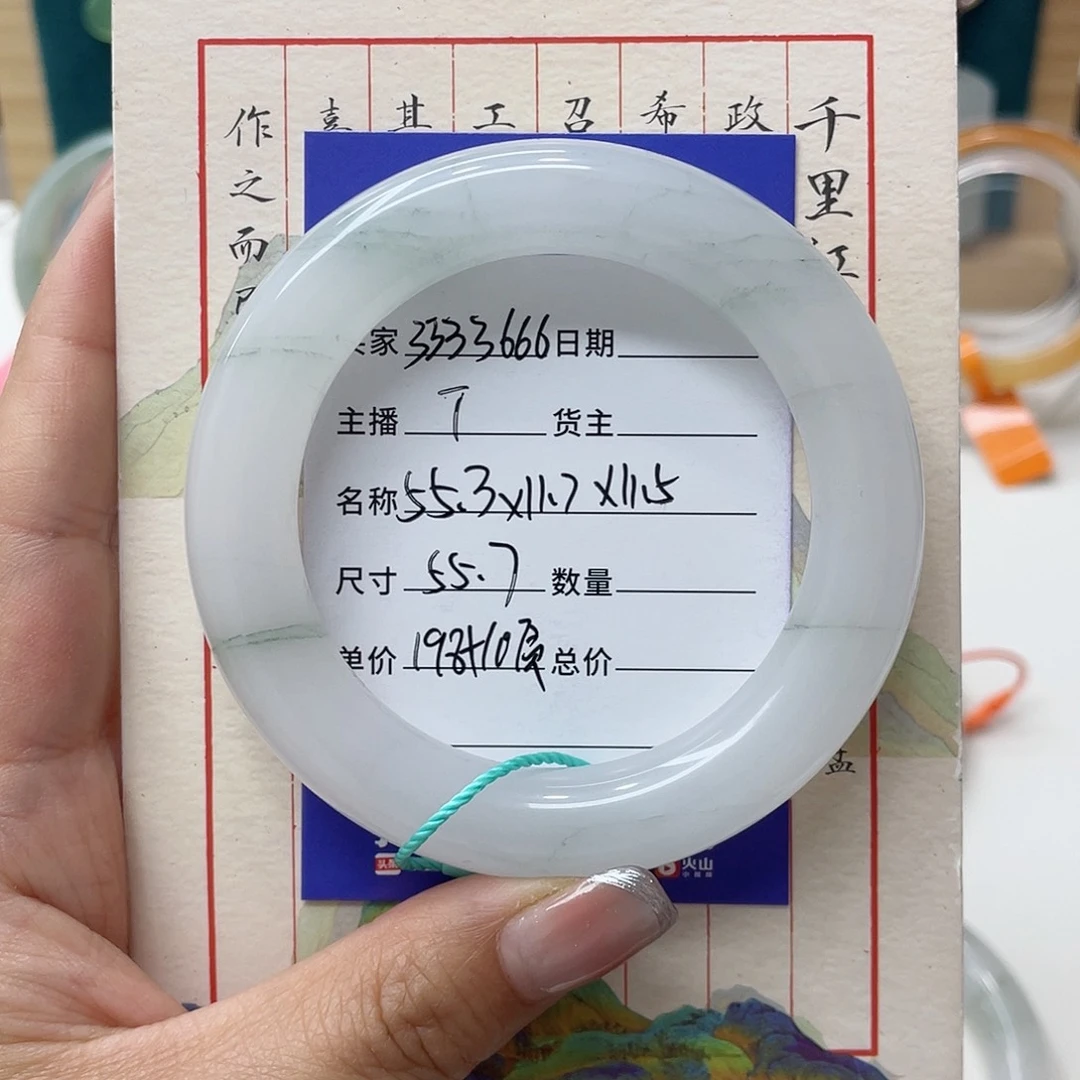 千里江
政
希
召
工
其
作之而
家 3533666 日期
主播 T 货主
名称 55.3x11.7x11.5
尺寸 55.7 数量
单价 198+10 总价
孟
头条
火山
小视频